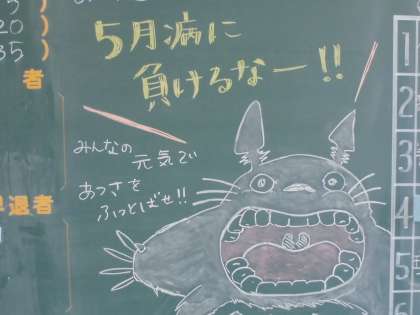 5月病に
負けるなー!!
みんなの
元気で
あつさを
ふっとばせ!!
者
退者
20)
35)
1
2
3
4
5
6